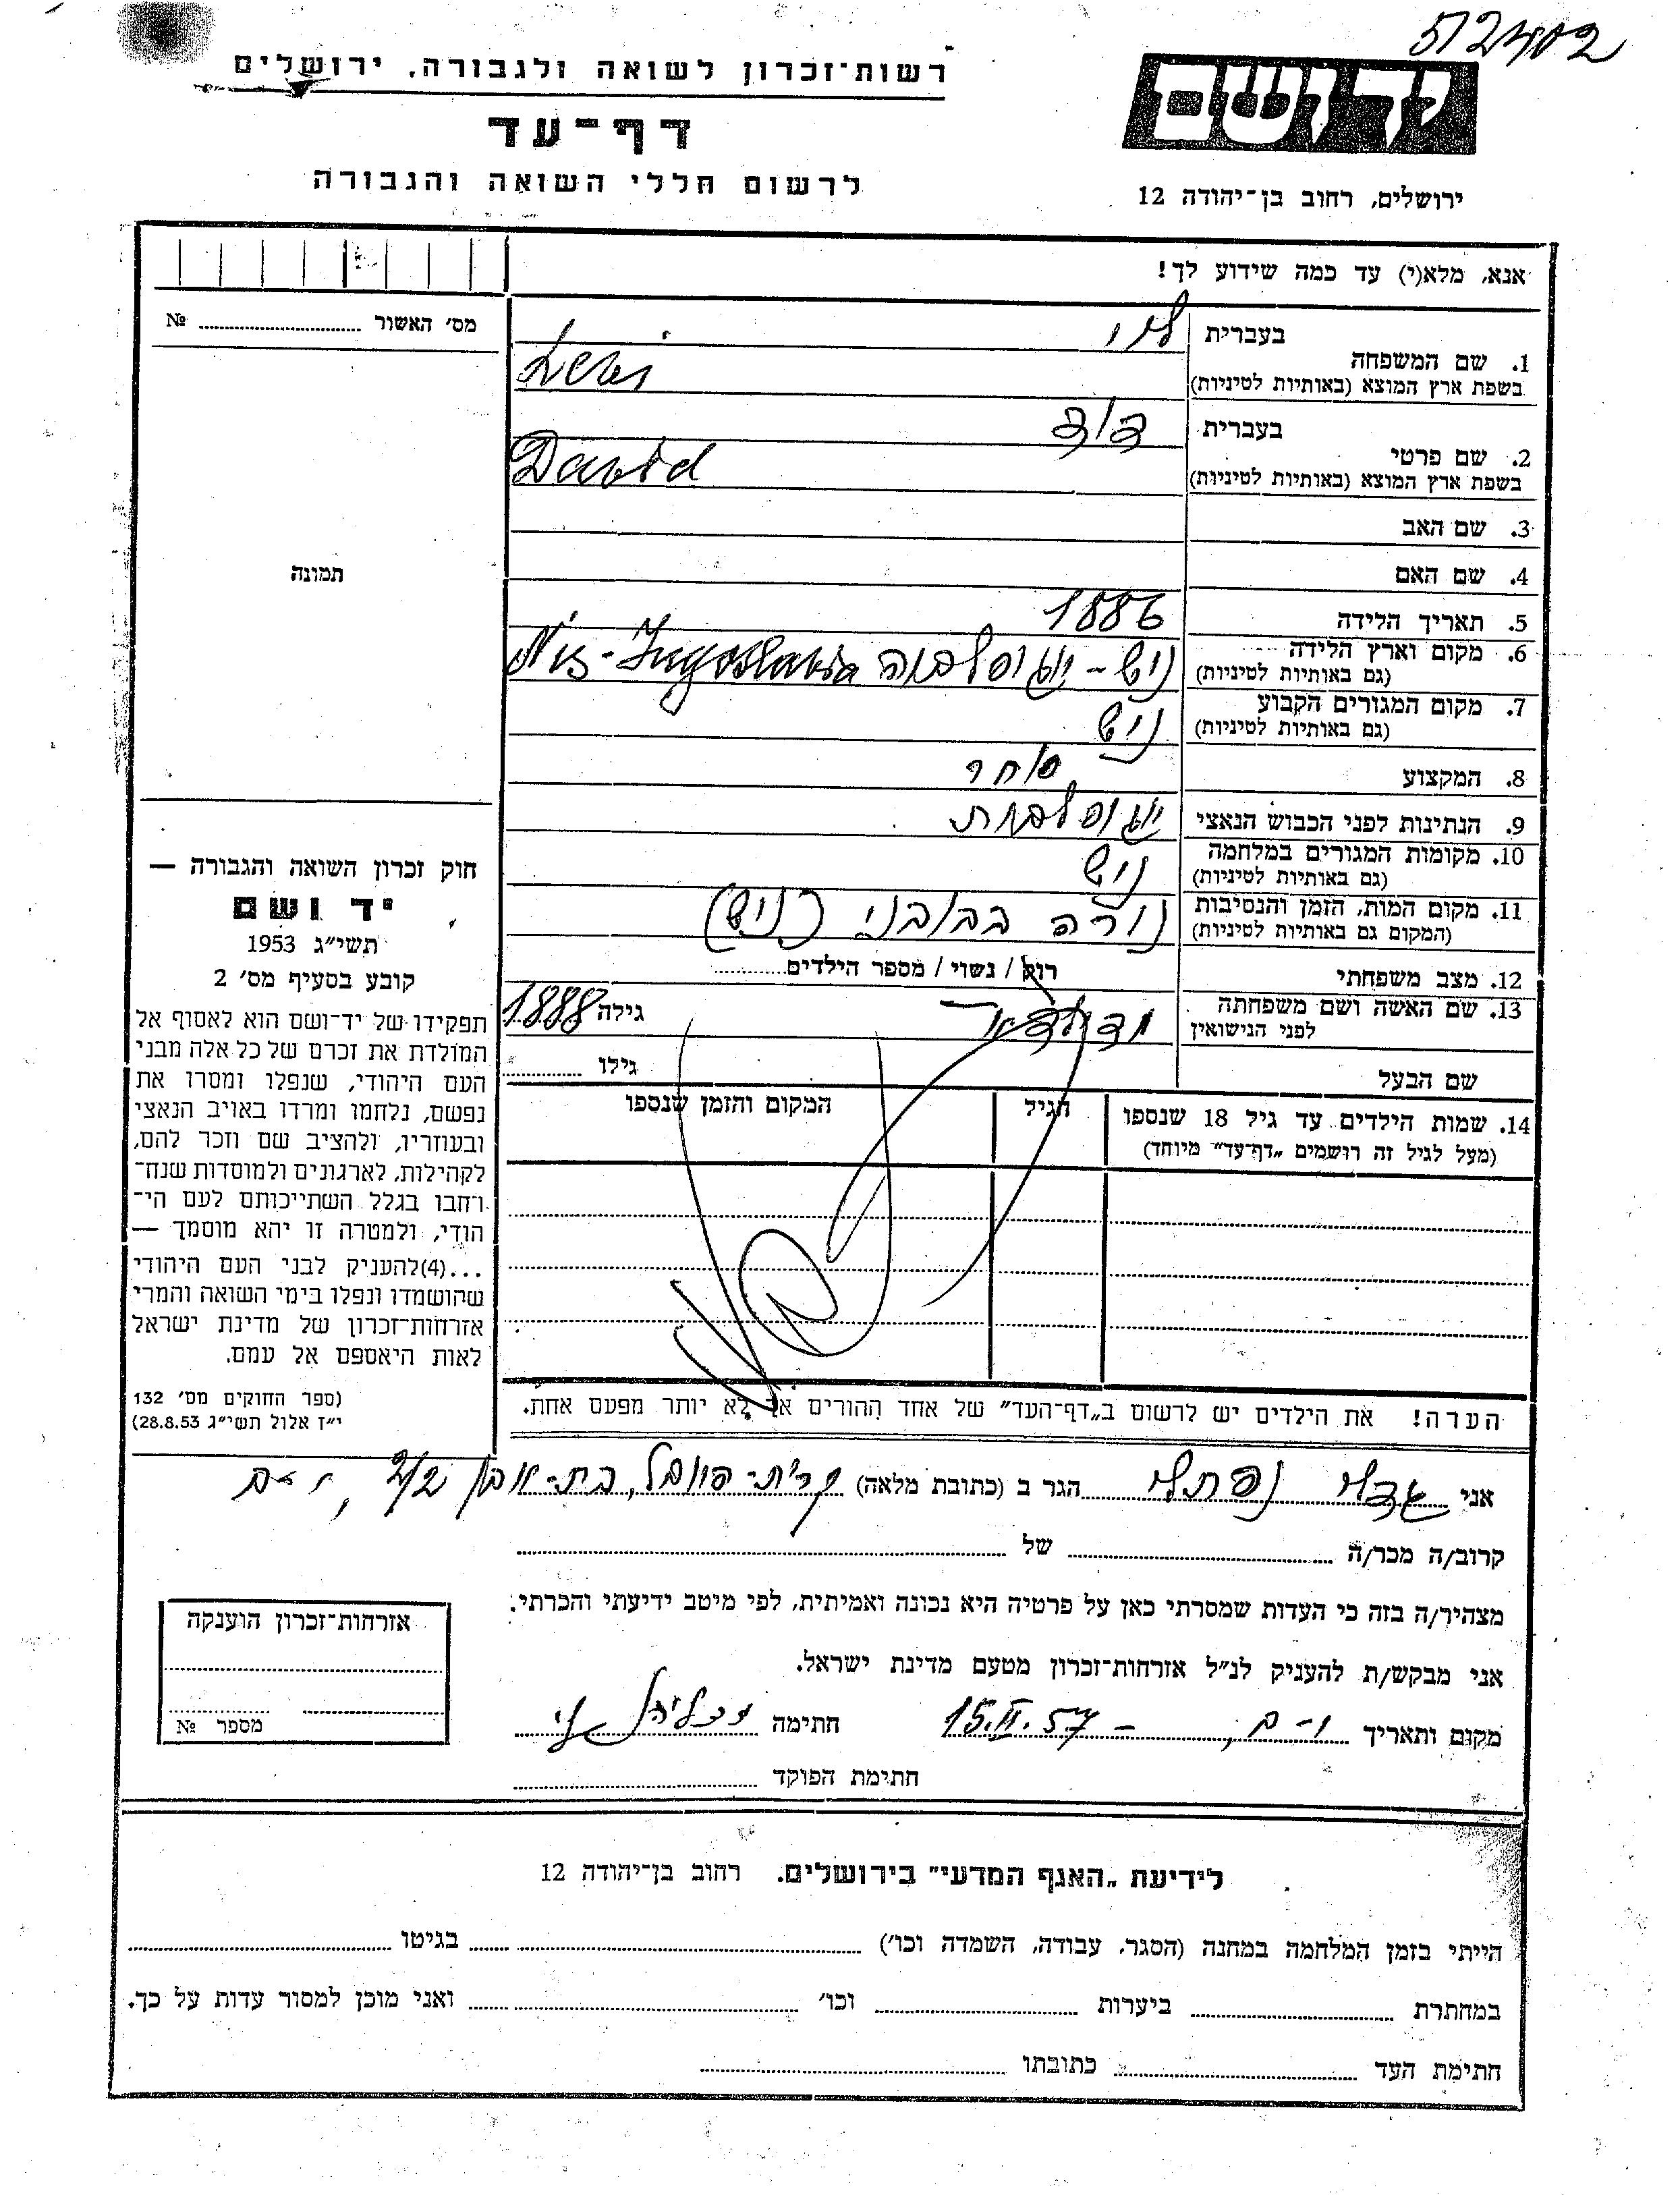 512402
רשות־זכרון לשואה ולגבורה, ירושלים
ידושם
דף־עד
לרשום חללי השואה והגבורה
ירושלים, רחוב בן־יהודה 12
אנא, מלא(י) עד כמה שידוע לך!
מס׳ האשור № 
בעברית לוי
1. שם המשפחה
בשפת ארץ המוצא (באותיות לטיניות) Levi
בעברית דוד
2. שם פרטי
בשפת ארץ המוצא (באותיות לטיניות) David
3. שם האב
4. שם האם
תמונה
5. תאריך הלידה 1886
6. מקום וארץ הלידה
(גם באותיות לטיניות) ניש - יוגוסלביה Nis-Jugoslavia
7. מקום המגורים הקבוע
(גם באותיות לטיניות) ניש
8. המקצוע סוחר
9. הנתינות לפני הכבוש הנאצי יוגוסלבית
10. מקומות המגורים במלחמה
(גם באותיות לטיניות) ניש
11. מקום המות, הזמן והנסיבות
(המקום גם באותיות לטיניות) נורה בבובני (ניש)
12. מצב משפחתי רוק / נשוי / מספר הילדים
13. שם האשה ושם משפחתה
לפני הנישואין גילה 1888
שם הבעל גילו
14. שמות הילדים עד גיל 18 שנספו הגיל המקום והזמן שנספו
(מעל לגיל זה רושמים „דף־עד” מיוחד)
הערה! את הילדים יש לרשום ב„דף־העד” של אחד ההורים אך לא יותר מפעם אחת.
חוק זכרון השואה והגבורה —
יד ושם
תשי״ג 1953
קובע בסעיף מס׳ 2
תפקידו של יד־ושם הוא לאסוף אל
המולדת את זכרם של כל אלה מבני
העם היהודי, שנפלו ומסרו את
נפשם, נלחמו ומרדו באויב הנאצי
ובעוזריו, ולהציב שם וזכר להם,
לקהילות, לארגונים ולמוסדות שנח־
רחבו בגלל השתייכותם לעם הי־
הודי, ולמטרה זו יהא מוסמך —
...(4)להעניק לבני העם היהודי
שהושמדו ונפלו בימי השואה והמרי
אזרחות־זכרון של מדינת ישראל
לאות היאספם אל עמם.
(ספר החוקים מס׳ 132
י״ז אלול תשי״ג 28.8.53)
אני נפתלי הגר ב (כתובת מלאה) קרית-יובל, 2/2
קרוב/ה מכר/ה של
מצהיר/ה בזה כי העדות שמסרתי כאן על פרטיה היא נכונה ואמיתית, לפי מיטב ידיעתי והכרתי.
אני מבקש/ת להעניק לנ״ל אזרחות־זכרון מטעם מדינת ישראל.
מקום ותאריך י-ם, - 15.II.57 חתימה
חתימת הפוקד
אזרחות־זכרון הוענקה
מספר №
לידיעת „האגף המדעי” בירושלים. רחוב בן־יהודה 12
הייתי בזמן המלחמה במחנה (הסגר, עבודה, השמדה וכו׳) בגיטו
במחתרת ביערות וכו׳ ואני מוכן למסור עדות על כך.
חתימת העד כתובתו